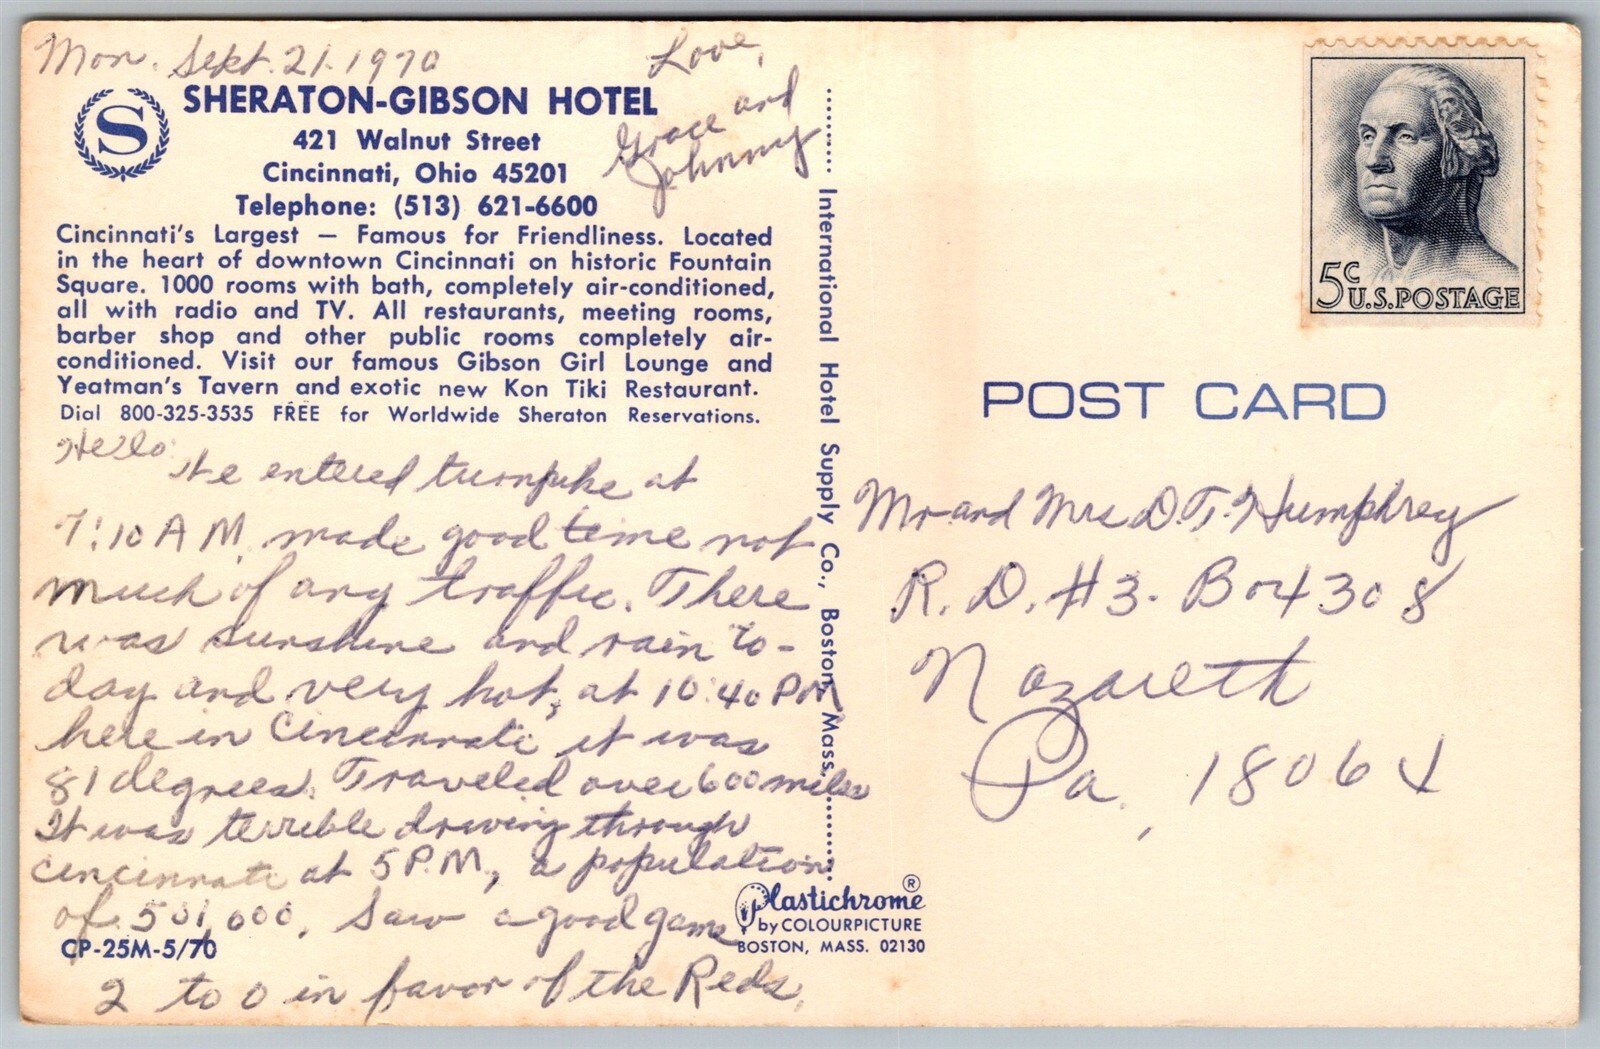 Mon. Sept. 21. 1970
Love,
Grace and
Johnny
S
SHERATON-GIBSON HOTEL
421 Walnut Street
Cincinnati, Ohio 45201
Telephone: (513) 621-6600
Cincinnati's Largest — Famous for Friendliness. Located
in the heart of downtown Cincinnati on historic Fountain
Square. 1000 rooms with bath, completely air-conditioned,
all with radio and TV. All restaurants, meeting rooms,
barber shop and other public rooms completely air-
conditioned. Visit our famous Gibson Girl Lounge and
Yeatman's Tavern and exotic new Kon Tiki Restaurant.
Dial 800-325-3535 FREE for Worldwide Sheraton Reservations.
Hello
We entered turnpike at
7:10 A M. made good time not
much of any traffic. There
was sunshine and rain to-
day and very hot, at 10:40 PM
here in Cincinnati it was
81 degrees. Traveled over 600 miles
It was terrible driving through
Cincinnati at 5 P.M., a population
of 501,000. Saw a good game
2 to 0 in favor of the Reds.
CP-25M-5/70
International Hotel Supply Co., Boston, Mass.
Plastichrome ®
by COLOURPICTURE
BOSTON, MASS. 02130
5c U.S.POSTAGE
POST CARD
Mr and Mrs D. T. Humphrey
R. D. #3. Box 308
Nazareth
Pa. 18064